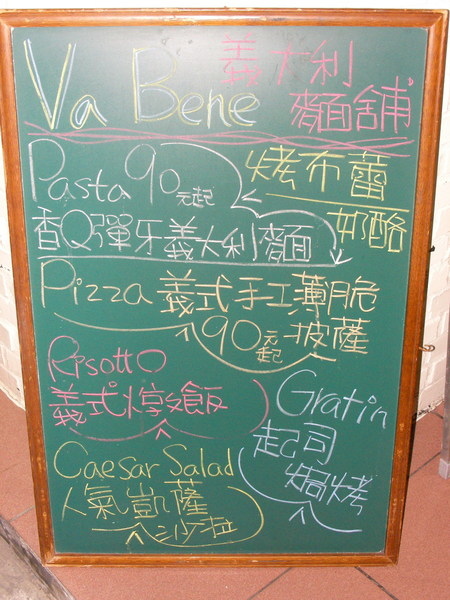 Va Bene 義大利
麵舖
Pasta 90元起
烤布蕾
奶酪
香Q彈牙義大利麵
Pizza 義式手工薄脆
披薩
90元起
Risotto
義式燉飯
Gratin
起司
焗烤
Caesar Salad
人氣凱薩
沙拉